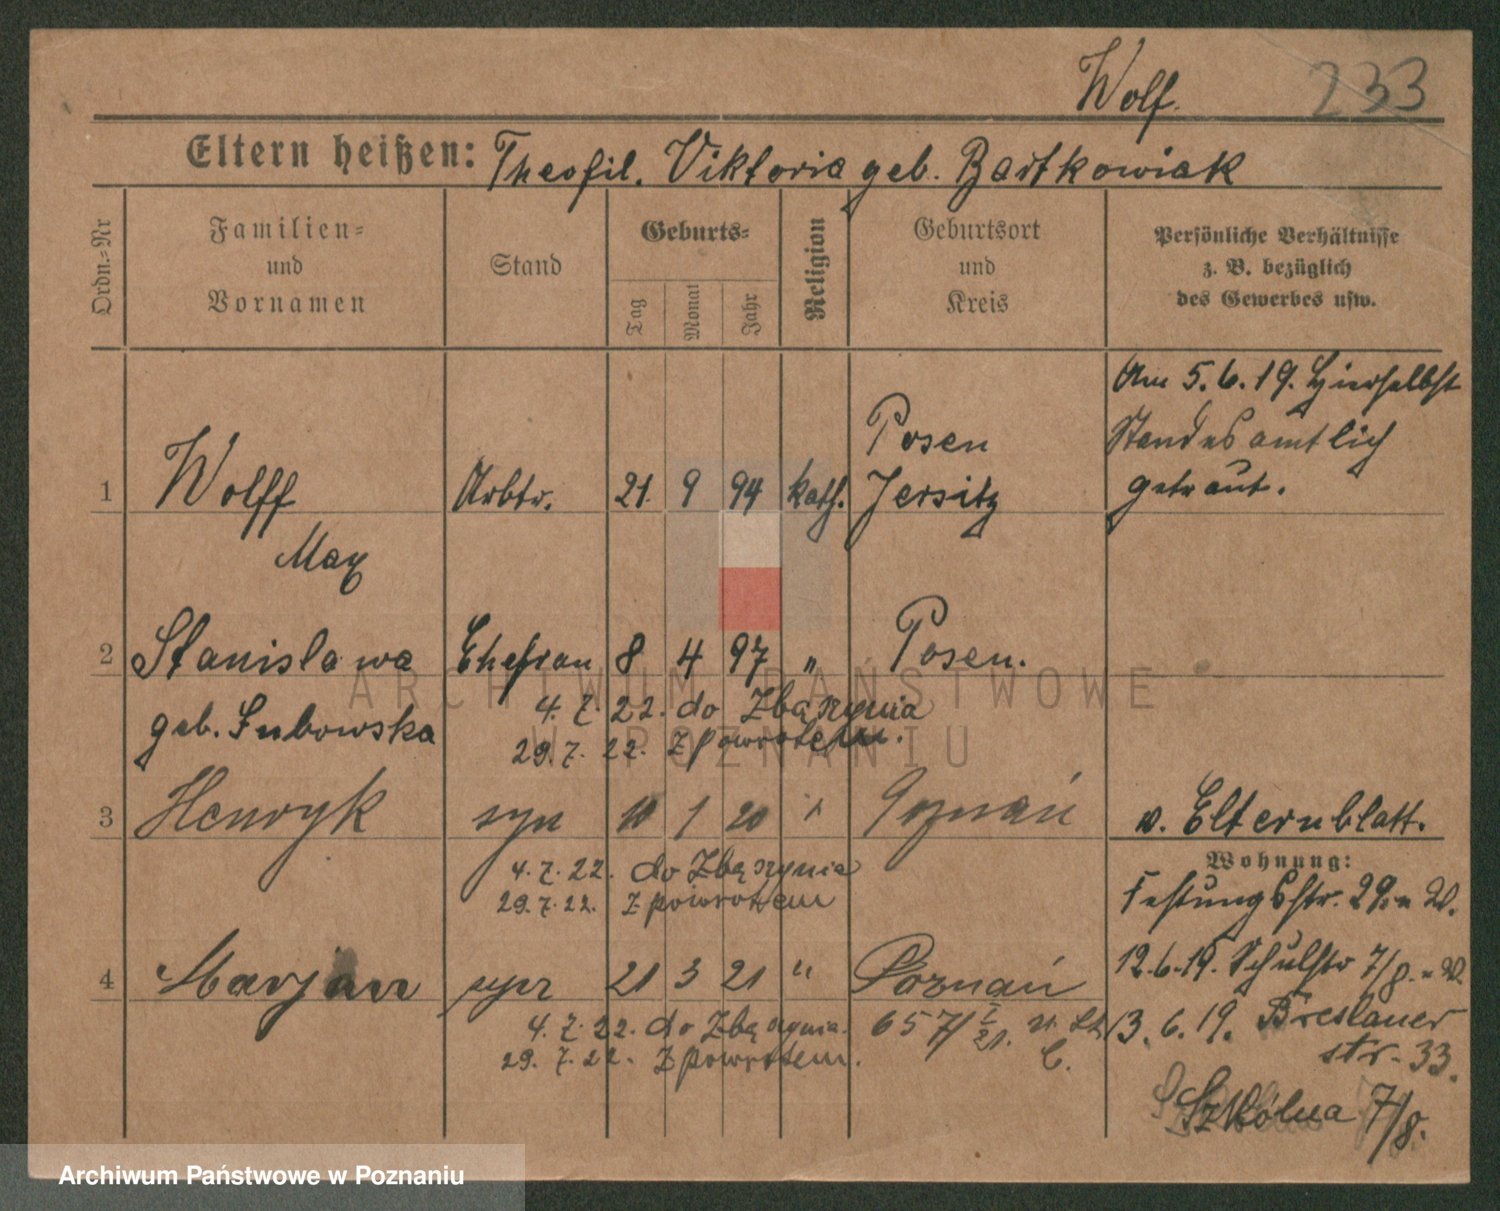 Wolf. 233
Eltern heißen: Theofil. Viktoria geb. Bartkowiak
Ordn.=Nr
Familien=
und
Vornamen
Stand
Geburts=
Tag
Monat
Jahr
Religion
Geburtsort
und
Kreis
Persönliche Verhältnisse
z. B. bezüglich
des Gewerbes usw.
Am 5.6.19. Hierselbst
Standesamtlich
getraut.
Posen
1 Wolff Arbtr. 21. 9 94 kath. Jersitz
Max
2 Stanislawa Ehefrau 8 4 97 " Posen.
geb. Lubowska
4. 7. 22. do Zbąszynia
29. 7. 22. Z powrotem.
3 Henryk syn 10 1 20 " Poznań
v. Elternblatt.
4. 7. 22. do Zbąszynia
29. 7. 22. Z powrotem
Wohnung:
Festungsstr.
12.6.19. Schulstr 7/8.
4 Marjan syn 21 3 21 " Poznań
4. 7. 22. do Zbąszynia.
29. 7. 22. Z powrotem.
657/
13. 6. 19. Breslauer
str. 33.
Szkólna 7/8.
ARCHIWUM PAŃSTWOWE
W POZNANIU
Archiwum Państwowe w Poznaniu